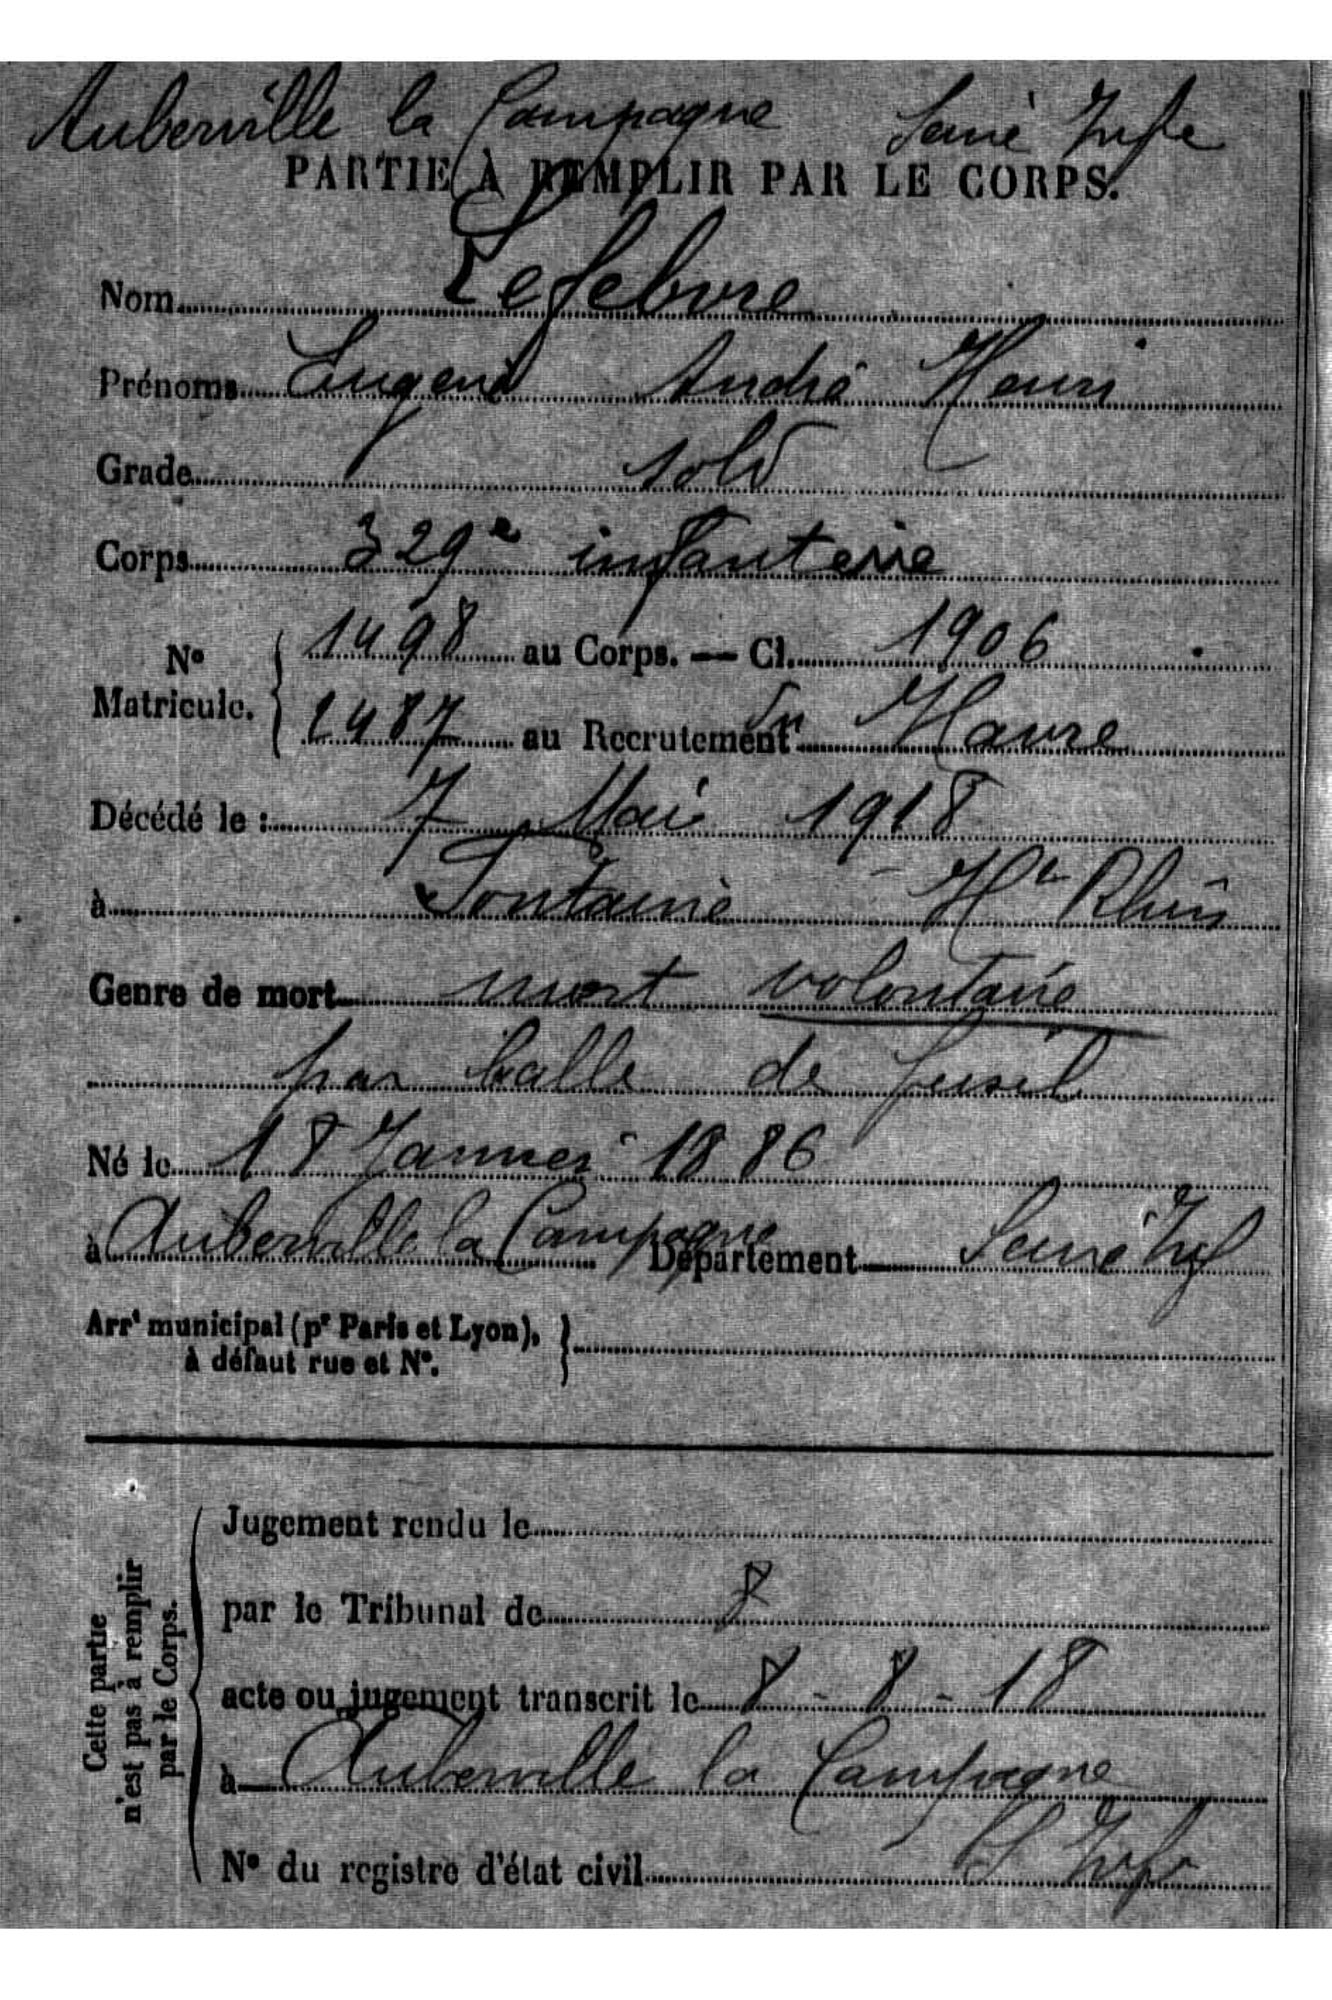 Auberville la Campagne Seine Infre
PARTIE À REMPLIR PAR LE CORPS.
Nom Lefebvre
Prénoms Eugène André Henri
Grade sold
Corps 329e infanterie
No Matricule. 1498 au Corps. — Cl. 1906
1487 au Recrutement du Havre
Décédé le : 7 Mai 1918
à Fontaine - Ht Rhin
Genre de mort mort volontaire
par balle de fusil
Né le 18 Janvier 1886
à Auberville la Campagne Département Seine Inf
Arrt municipal (pr Paris et Lyon),
à défaut rue et No.
Cette partie
n'est pas à remplir
par le Corps.
Jugement rendu le
par le Tribunal de
acte ou jugement transcrit le 8 - 8 - 18
à Auberville la Campagne
No du registre d'état civil S Infre